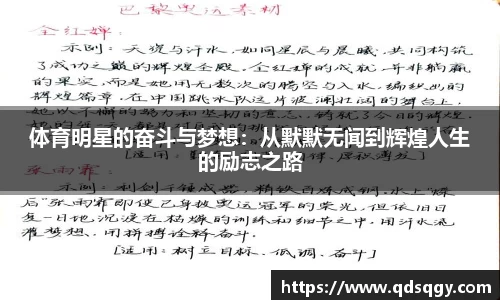 巴黎奥运素材
全红婵：
示例：天淀与汗水，如同星辰与晨曦，共同构筑
了成功之巅的辉煌圣殿。全红婵的成就，并非躺赢
的果实，而是她用无数次的腾空与入水，编织出的
辉煌篇章。在中国跳水队这片波澜壮阔的舞台上，
体育明星的奋斗与梦想：从默默无闻到辉煌人生
的励志之路
张雨霏：
示例：利剑千锤成器，精铁百炼成钢，水上"蝶
后"张雨霏即使已身披奥运冠军的荣光，但依旧日
复一日地沉浸在枯燥的训练和细节之中，用汗水浇
灌梦想，用拼搏诠释奋斗。
[适用：树立目标、低调、奋斗]
https://www.qdsqgy.com